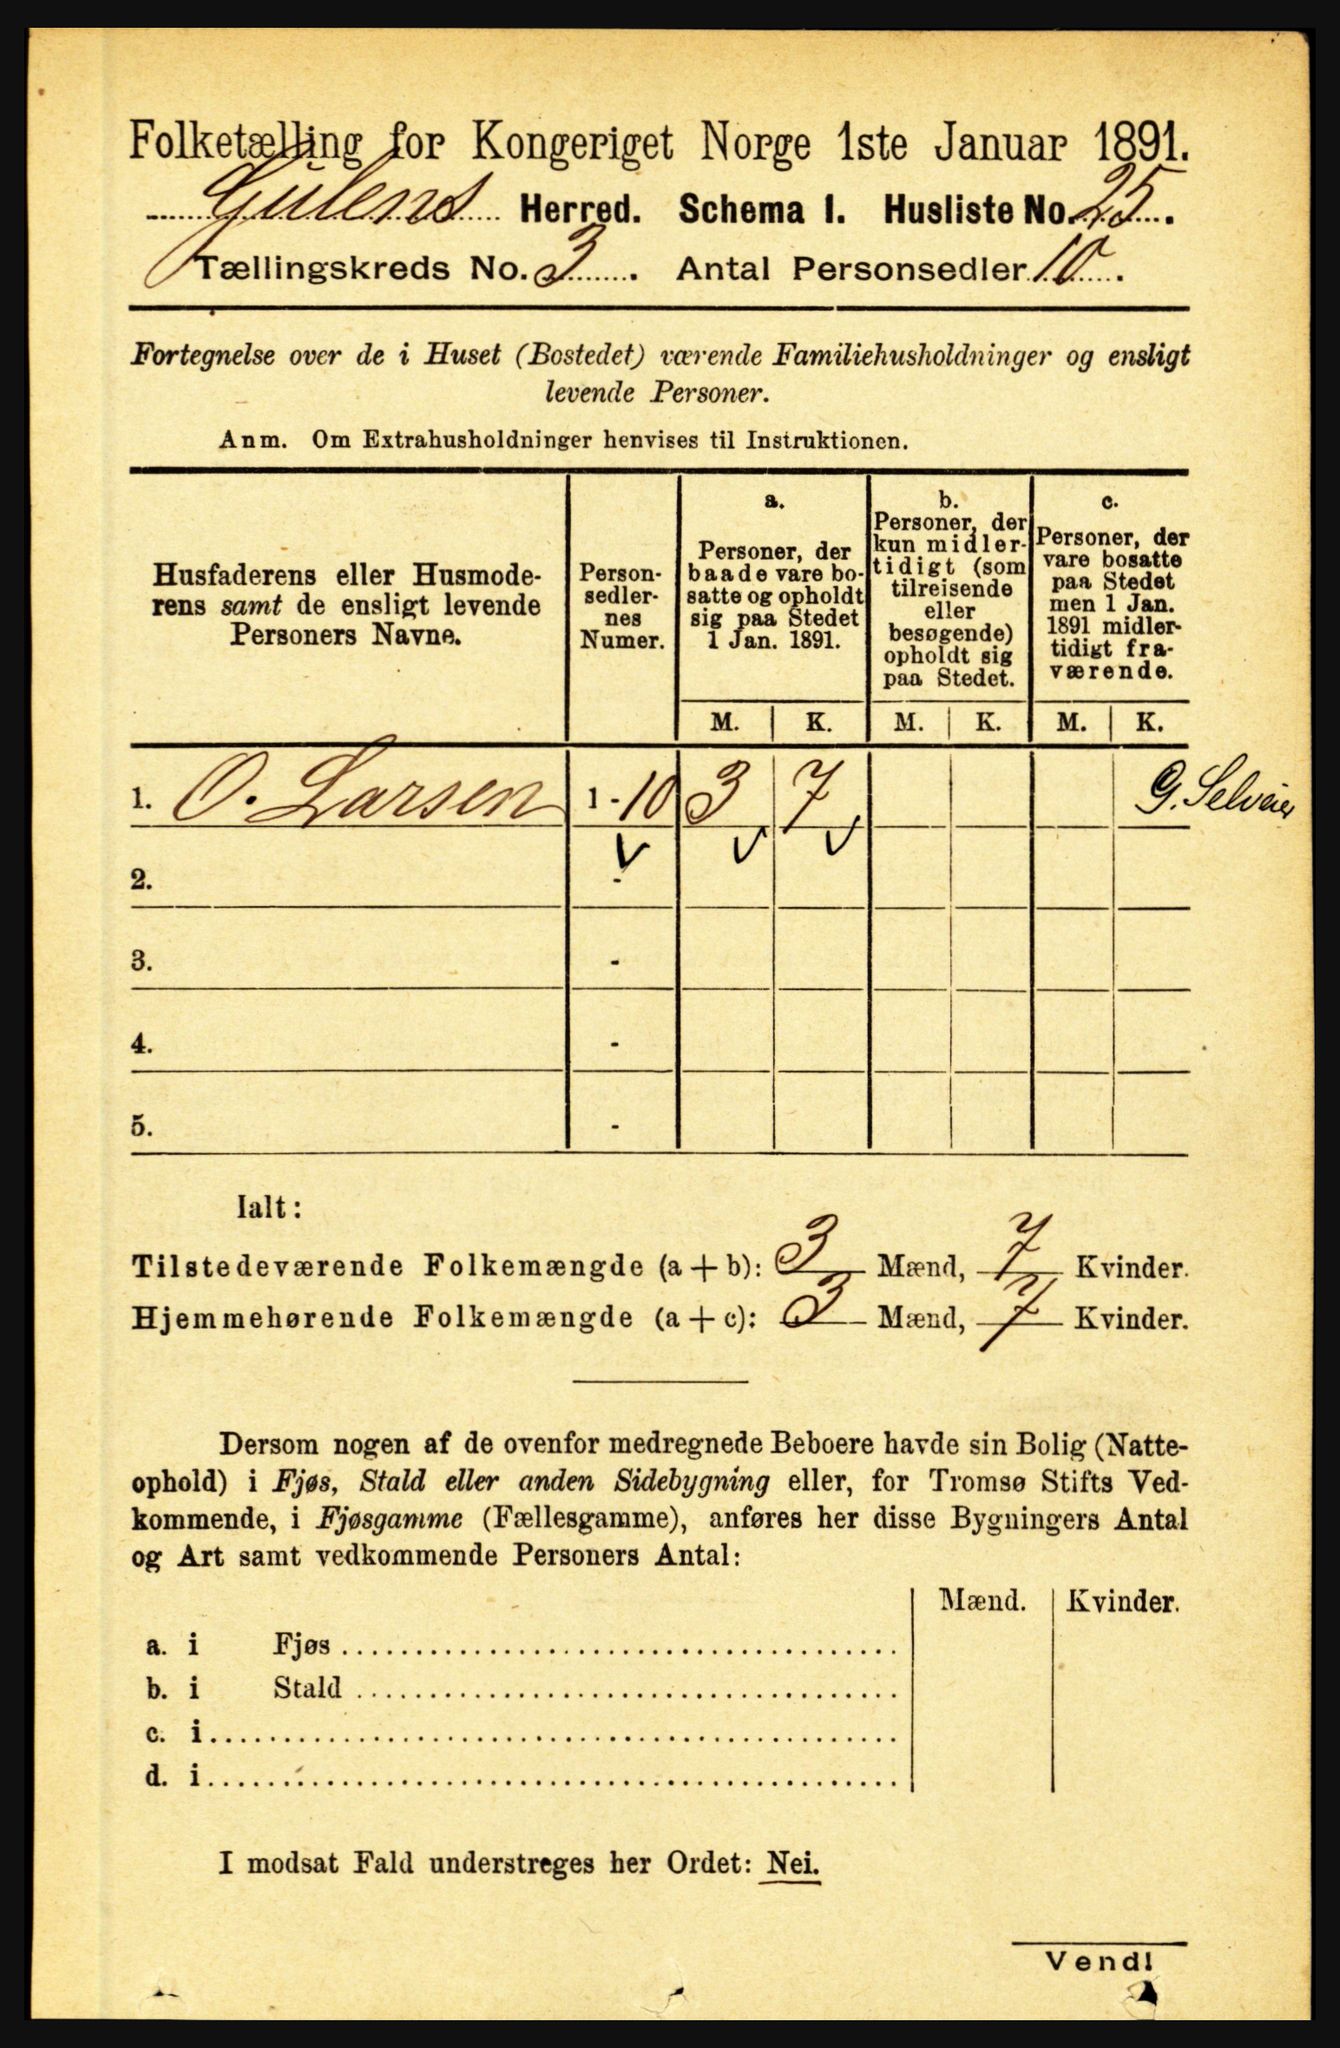 Folketælling for Kongeriget Norge 1ste Januar 1891.
Gulens Herred. Schema I. Husliste No. 25.
Tællingskreds No. 3. Antal Personsedler 10.
Fortegnelse over de i Huset (Bostedet) værende Familiehusholdninger og ensligt
levende Personer.
Anm. Om Extrahusholdninger henvises til Instruktionen.
Husfaderens eller Husmode-
rens samt de ensligt levende
Personers Navne.
Person-
sedler-
nes
Numer.
a.
Personer, der
baade vare bo-
satte og opholdt
sig paa Stedet
1 Jan. 1891.
b.
Personer, der
kun midler-
tidigt (som
tilreisende
eller
besøgende)
opholdt sig
paa Stedet.
c.
Personer, der
vare bosatte
paa Stedet
men 1 Jan.
1891 midler-
tidigt fra-
værende.
M. K. M. K. M. K.
1. O. Larsen 1 - 10 3 7 G.
2. -
3. -
4. -
5. -
Ialt:
Tilstedeværende Folkemængde (a + b): 3 Mænd, 7 Kvinder.
Hjemmehørende Folkemængde (a + c): 3 Mænd, 7 Kvinder.
Dersom nogen af de ovenfor medregnede Beboere havde sin Bolig (Natte-
ophold) i Fjøs, Stald eller anden Sidebygning eller, for Tromsø Stifts Ved-
kommende, i Fjøsgamme (Fællesgamme), anføres her disse Bygningers Antal
og Art samt vedkommende Personers Antal:
Mænd. Kvinder.
a. i Fjøs
b. i Stald
c. i
d. i
I modsat Fald understreges her Ordet: Nei.
Vend!